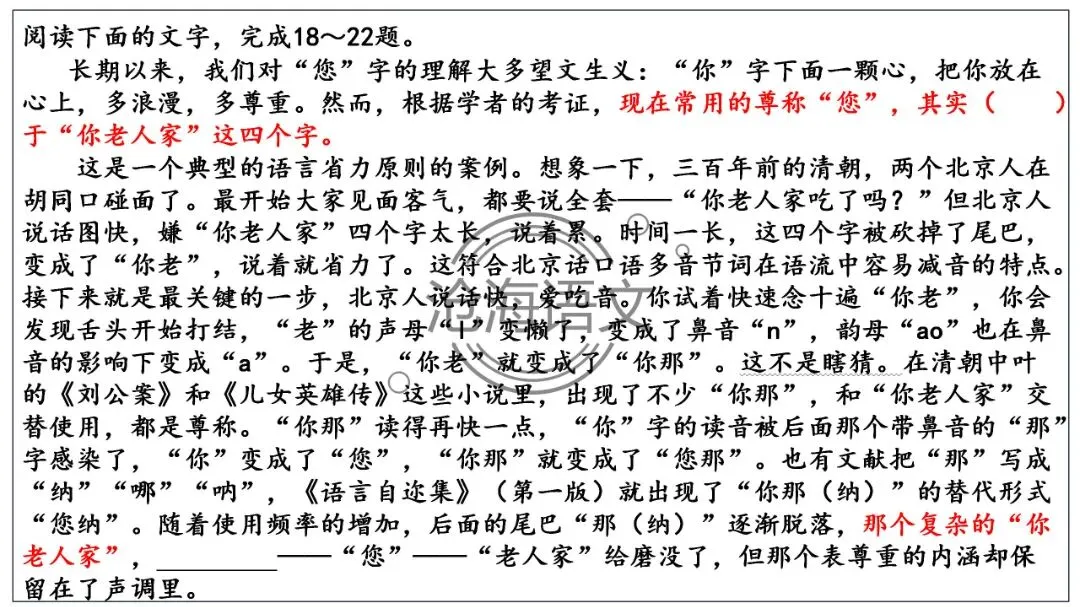 阅读下面的文字，完成18～22题。
长期以来，我们对“您”字的理解大多望文生义：“你”字下面一颗心，把你放在
心上，多浪漫，多尊重。然而，根据学者的考证，现在常用的尊称“您”，其实（　　）
于“你老人家”这四个字。
这是一个典型的语言省力原则的案例。想象一下，三百年前的清朝，两个北京人在
胡同口碰面了。最开始大家见面客气，都要说全套——“你老人家吃了吗？”但北京人
说话图快，嫌“你老人家”四个字太长，说着累。时间一长，这四个字被砍掉了尾巴，
变成了“你老”，说着就省力了。这符合北京话口语多音节词在语流中容易减音的特点。
接下来就是最关键的一步，北京人说话快，爱吃音。你试着快速念十遍“你老”，你会
发现舌头开始打结，“老”的声母“l”变懒了，变成了鼻音“n”，韵母“ao”也在鼻
音的影响下变成“a”。于是，“你老”就变成了“你那”。这不是瞎猜。在清朝中叶
的《刘公案》和《儿女英雄传》这些小说里，出现了不少“你那”，和“你老人家”交
替使用，都是尊称。“你那”读得再快一点，“你”字的读音被后面那个带鼻音的“那”
字感染了，“你”变成了“您”，“你那”就变成了“您那”。也有文献把“那”写成
“纳”“哪”“呐”，《语言自迩集》（第一版）就出现了“你那（纳）”的替代形式
“您纳”。随着使用频率的增加，后面的尾巴“那（纳）”逐渐脱落，那个复杂的“你
老人家”，＿＿＿＿＿——“您”——“老人家”给磨没了，但那个表尊重的内涵却保
留在了声调里。
沧海语文